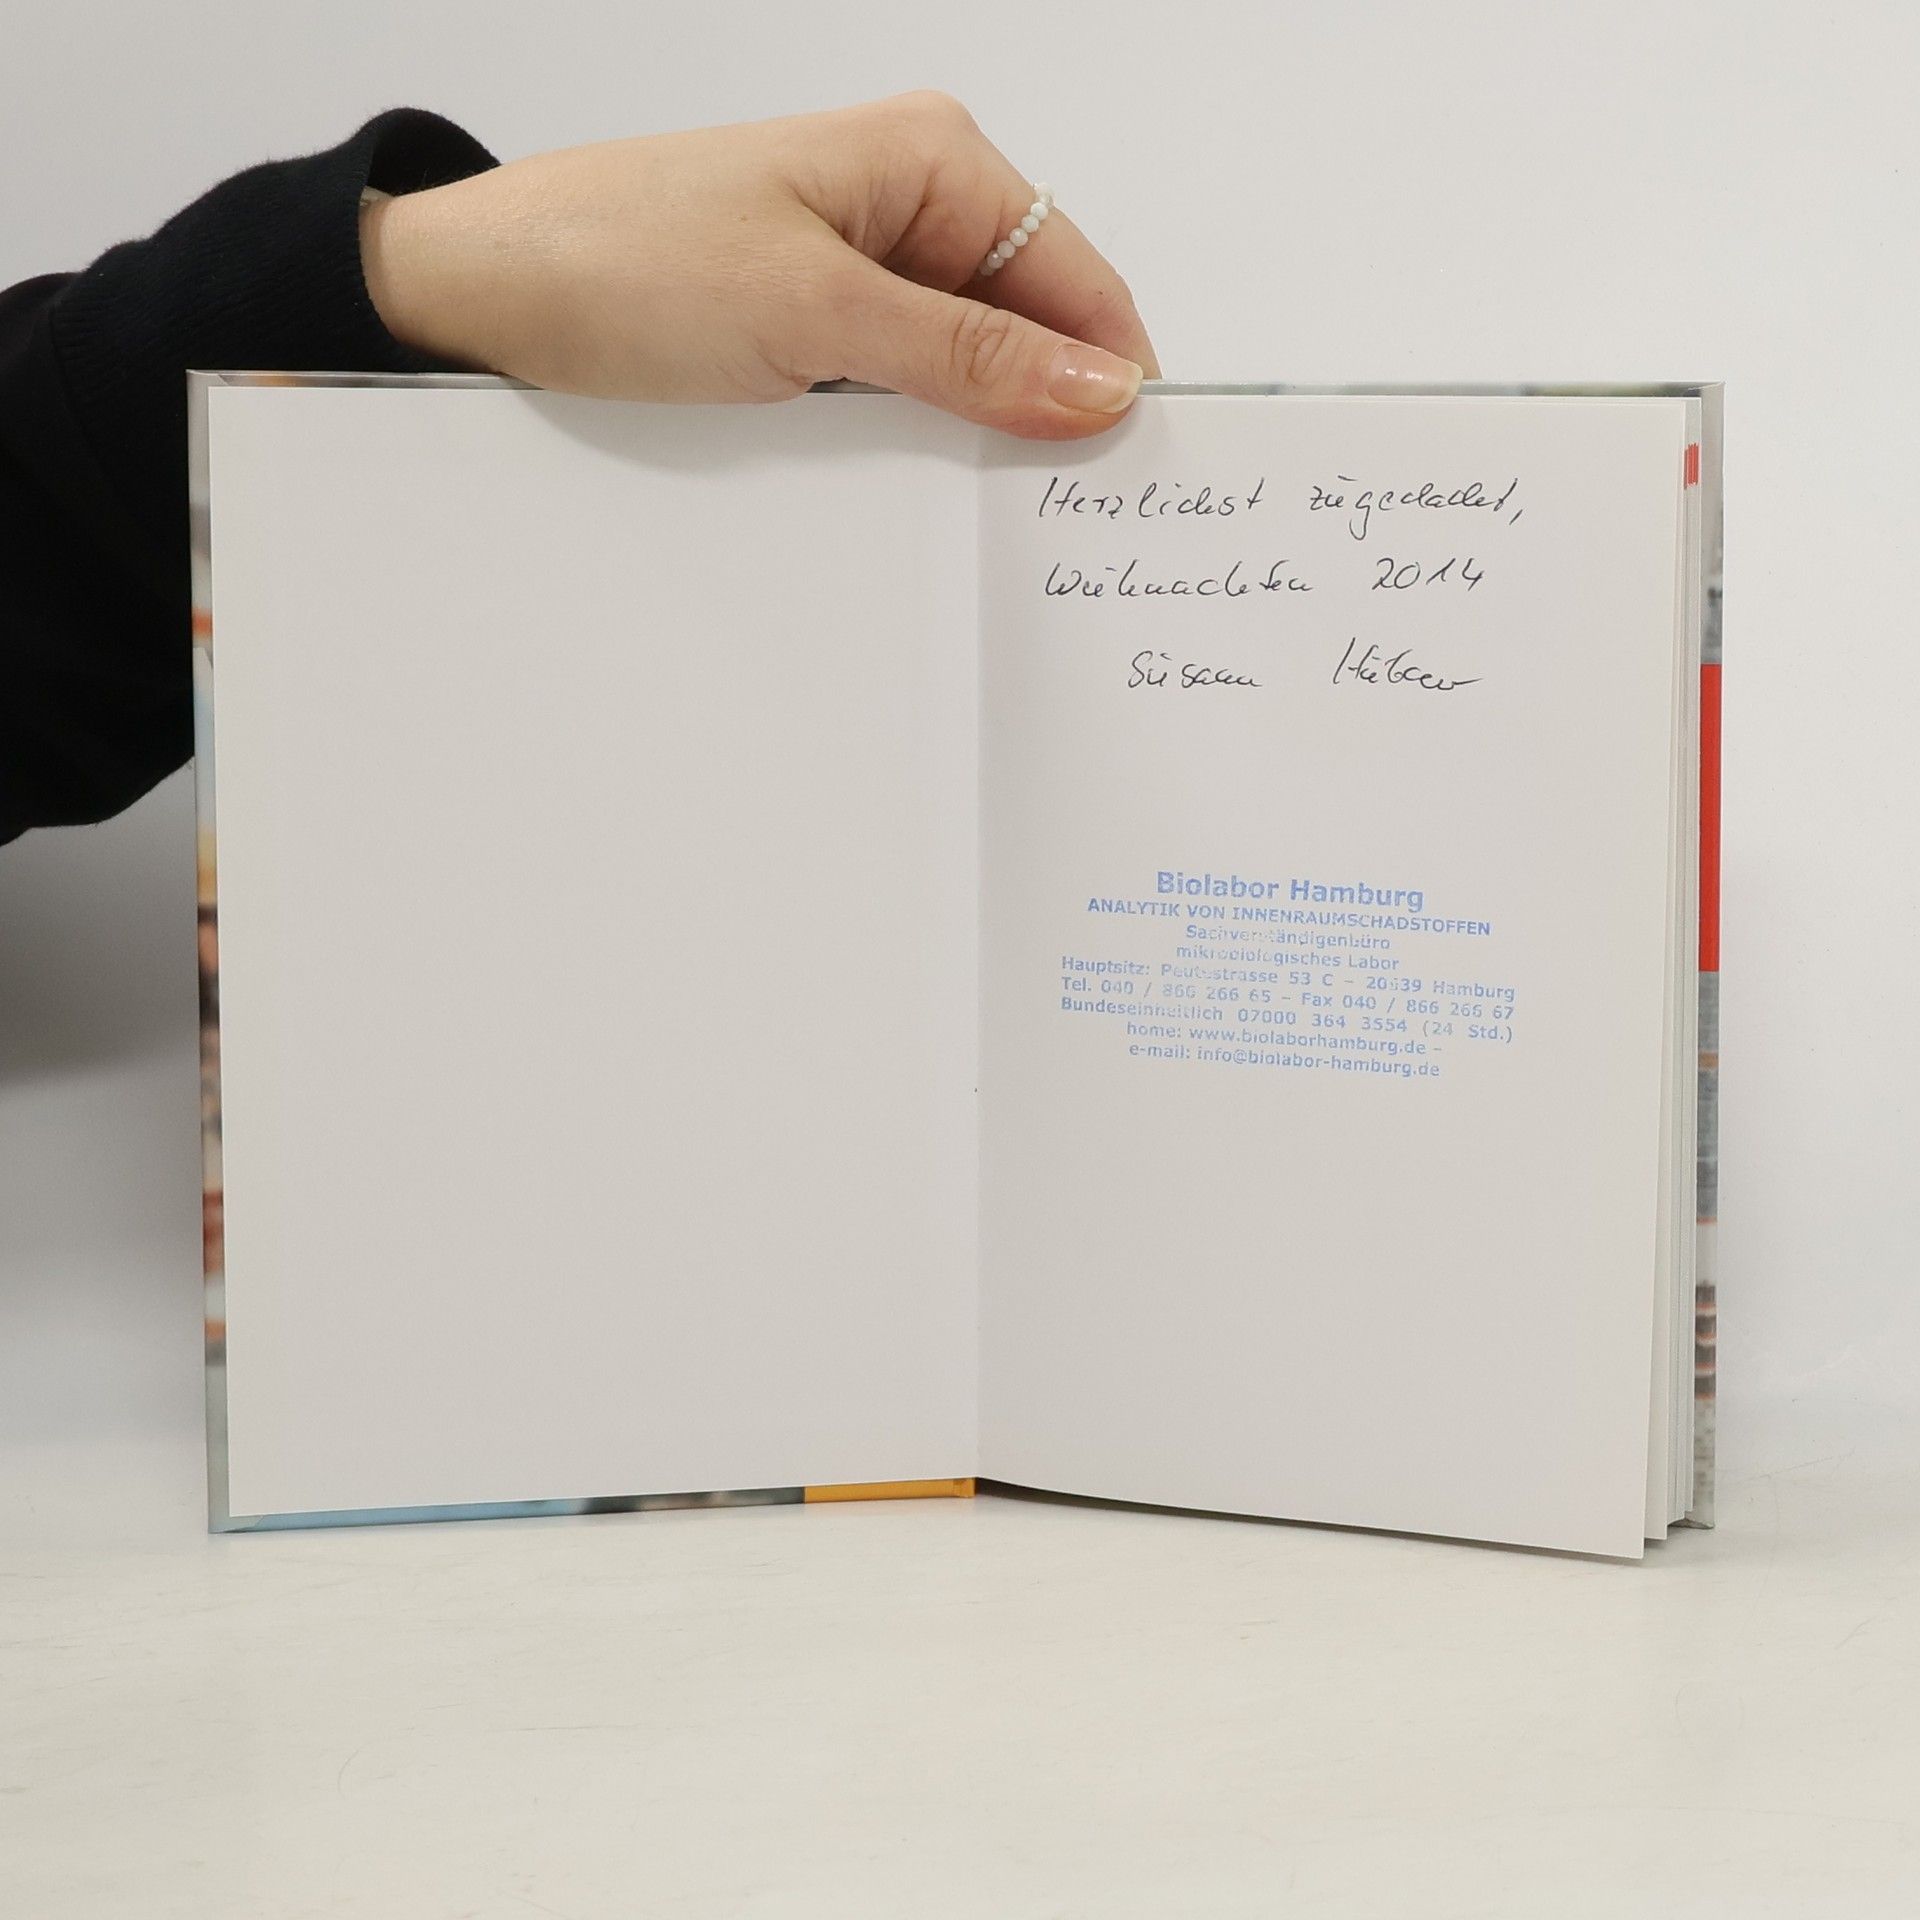 Herzlichst zugedacht,
Weihnachten 2014
Susann
Biolabor Hamburg
ANALYTIK VON INNENRAUMSCHADSTOFFEN
Sachverständigenbüro
mikrobiologisches Labor
Hauptsitz: Peutestrasse 53 C – 20539 Hamburg
Tel. 040 / 866 266 65 – Fax 040 / 866 266 67
Bundeseinheitlich 07000 364 3554 (24 Std.)
home: www.biolaborhamburg.de –
e-mail: info@biolabor-hamburg.de